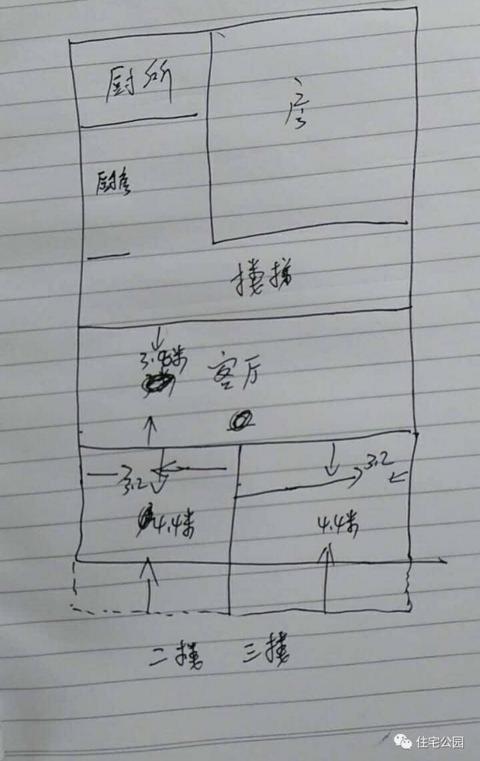 厨所
房
厨房
楼梯
3.8米
客厅
3.2
3.2
4.4米
4.4米
二楼 三楼
住宅公园